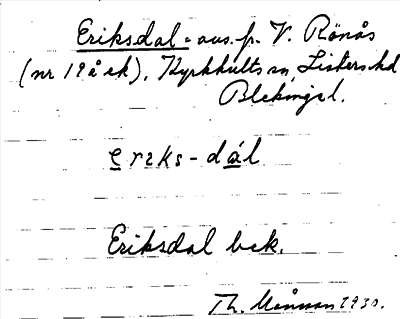 Eriksdal - avs. fr. V. Rönås
(nr 19 å ek), Kyrkhults sn, Listers hd
Blekinge l.
erəks-dál
Eriksdal bek.
Th. Månsson 1930.